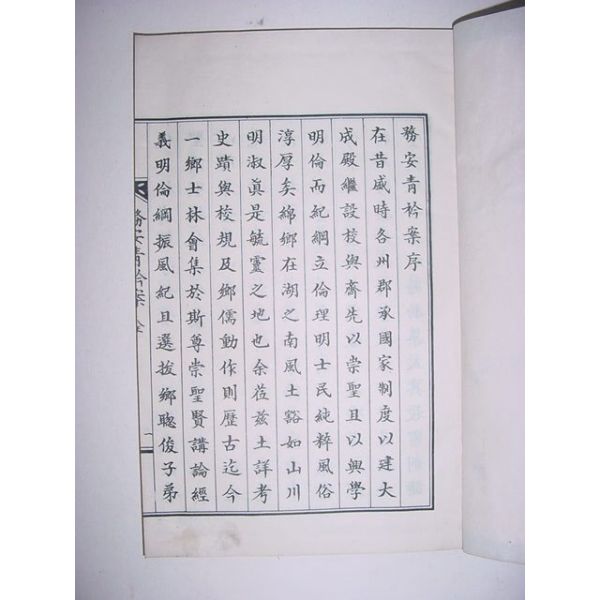 務安青衿案序
在昔盛時各州郡承國家制度以建大
成殿繼設校與齋先以崇聖且以興學
明倫而紀綱立倫理明士民純粹風俗
淳厚矣綿鄉在湖之南風土豁如山川
明淑眞是毓靈之地也余莅玆土詳考
史蹟與校規及鄉儒動作則歷古迄今
一鄉士林會集於斯尊崇聖賢講論經
義明倫綱振風紀且選拔鄉聰俊子弟
務安青衿案 全
一